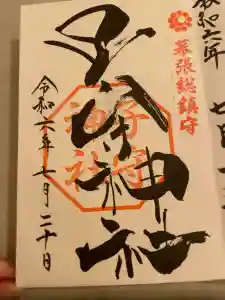 令和六年
幕張総鎮守
子守神社
子守神社
令和六年七月二十日